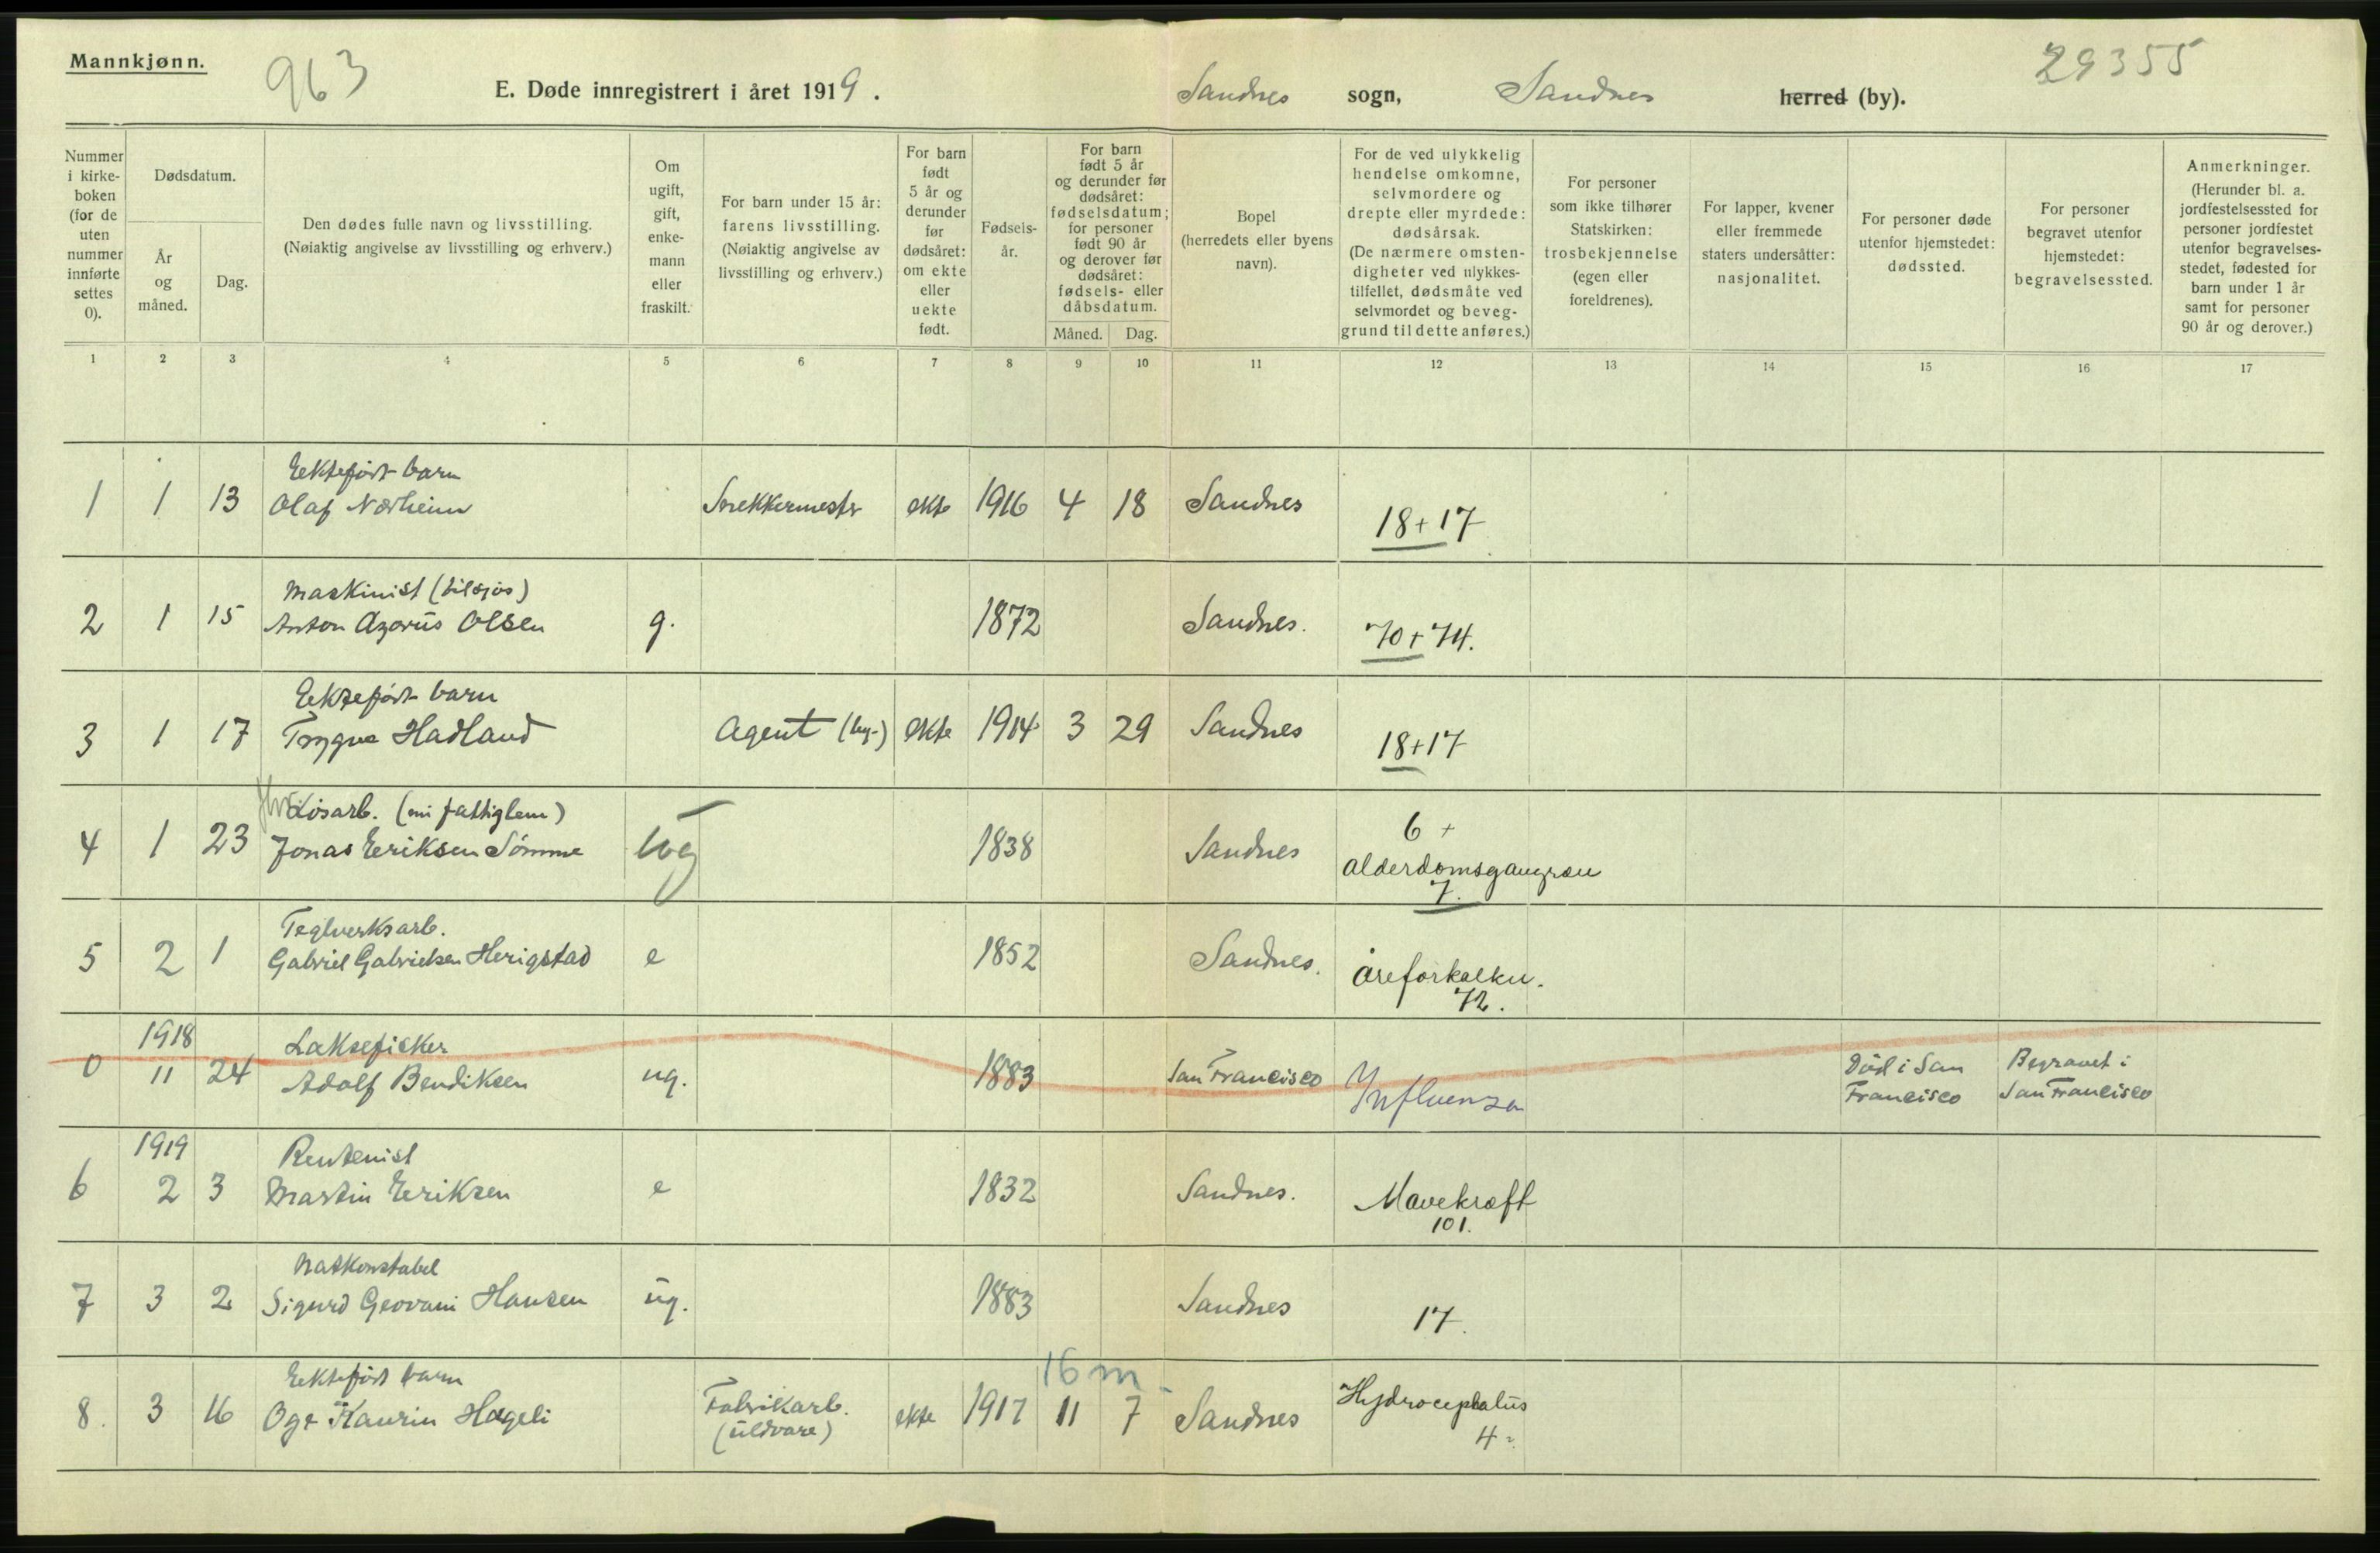 Mannkjønn.
963
E. Døde innregistrert i året 1919.
Sandnes sogn, Sandnes herred (by).
29355
Nummer i kirke-boken (for de uten nummer innførte settes 0).
Dødsdatum.
År og måned.
Dag.
Den dødes fulle navn og livsstilling.
(Nøiaktig angivelse av livsstilling og erhverv.)
Om ugift, gift, enke-mann eller fraskilt.
For barn under 15 år: farens livsstilling.
(Nøiaktig angivelse av livsstilling og erhverv.)
For barn født 5 år og derunder før dødsåret: om ekte eller uekte født.
Fødsels-år.
For barn født 5 år og derunder før dødsåret: fødselsdatum; for personer født 90 år og derover før dødsåret: fødsels- eller dåbsdatum.
Måned. Dag.
Bopel (herredets eller byens navn).
For de ved ulykkelig hendelse omkomne, selvmordere og drepte eller myrdede: dødsårsak.
(De nærmere omsten-digheter ved ulykkes-tilfellet, dødsmåte ved selvmordet og beveg-grund til dette anføres.)
For personer som ikke tilhører Statskirken: trosbekjennelse (egen eller foreldrenes).
For lapper, kvener eller fremmede staters undersåtter: nasjonalitet.
For personer døde utenfor hjemstedet: dødssted.
For personer begravet utenfor hjemstedet: begravelsessted.
Anmerkninger.
(Herunder bl. a. jordfestelsessted for personer jordfestet utenfor begravelses-stedet, fødested for barn under 1 år samt for personer 90 år og derover.)
1 2 3 4 5 6 7 8 9 10 11 12 13 14 15 16 17
Ektefødt barn
1 1 13 Olaf Nærheim Snekkermester ekte 1916 4 18 Sandnes 18+17
Maskinist (tilsjøs)
2 1 15 Anton Azarius Olsen g. 1872 Sandnes. 70+74.
Ektefødt barn
3 1 17 Trygve Hadland Agent ekte 1914 3 29 Sandnes 18+17
Løsarb. (nu fattiglem)
4 1 23 Jonas Eriksen Sömme ug 1838 Sandnes 6 +
alderdomsgangræn
7.
Teglverksarb.
5 2 1 Gabriel Gabrielsen Herigstad e 1852 Sandnes. åreforkalkn.
72.
1918 Laksefisker
0 11 24 Adolf Bendiksen ug. 1883 San Francisco Influenza Död i San Francisco Begravet i San Francisco
1919 Rentenist
6 2 3 Martin Eriksen e 1832 Sandnes. Mavekræft
101.
Natkonstabel
7 3 2 Sigurd Geovani Hansen ug. 1883 Sandnes 17.
16 m
Ektefødt barn
8. 3 16 Oge Kaurin Hægeli Fabrikarb. (uldvare) ekte 1917 11 7 Sandnes Hydrocephalus
4